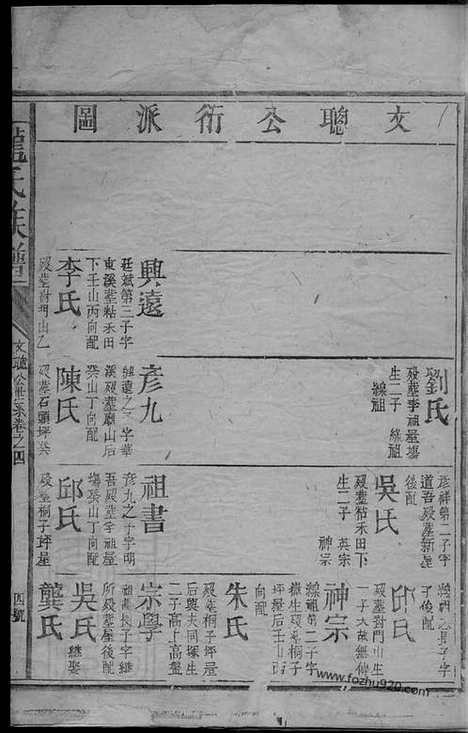 文聰公衍派圖
劉氏
歿葬李祖屋塲
生二子 㒷祖
㒷祖
興遠
廷斌第三子字
東溪葬粘禾田
下壬山丙向配
李氏
歿葬對門山乙
彥九
興遠之子字華
溪歿葬廟山后
癸山丁向配
陳氏
歿葬石頭坪癸
彥祥第二子字
道吾歿葬新屋
後配
吳氏
歿葬粘禾田下
生二子 英宗
神宗
祖書
彥九之子字明
吾歿葬李祖屋
塲癸山丁向配
邱氏
歿葬桐子坪屋
子俊配
邱氏
歿葬對門山生
一子大
神宗
祖第二子字
嶽生歿葬桐子
坪殿后壬山丙
向配
朱氏
歿葬桐子坪屋
后與夫同塚生
二子高上高盤
宗學
祖書長子字継
所歿葬屋後配
吳氏
継娶
龔氏
龍氏族譜
文聰公世系卷之四
四號
www.fozhu920.com